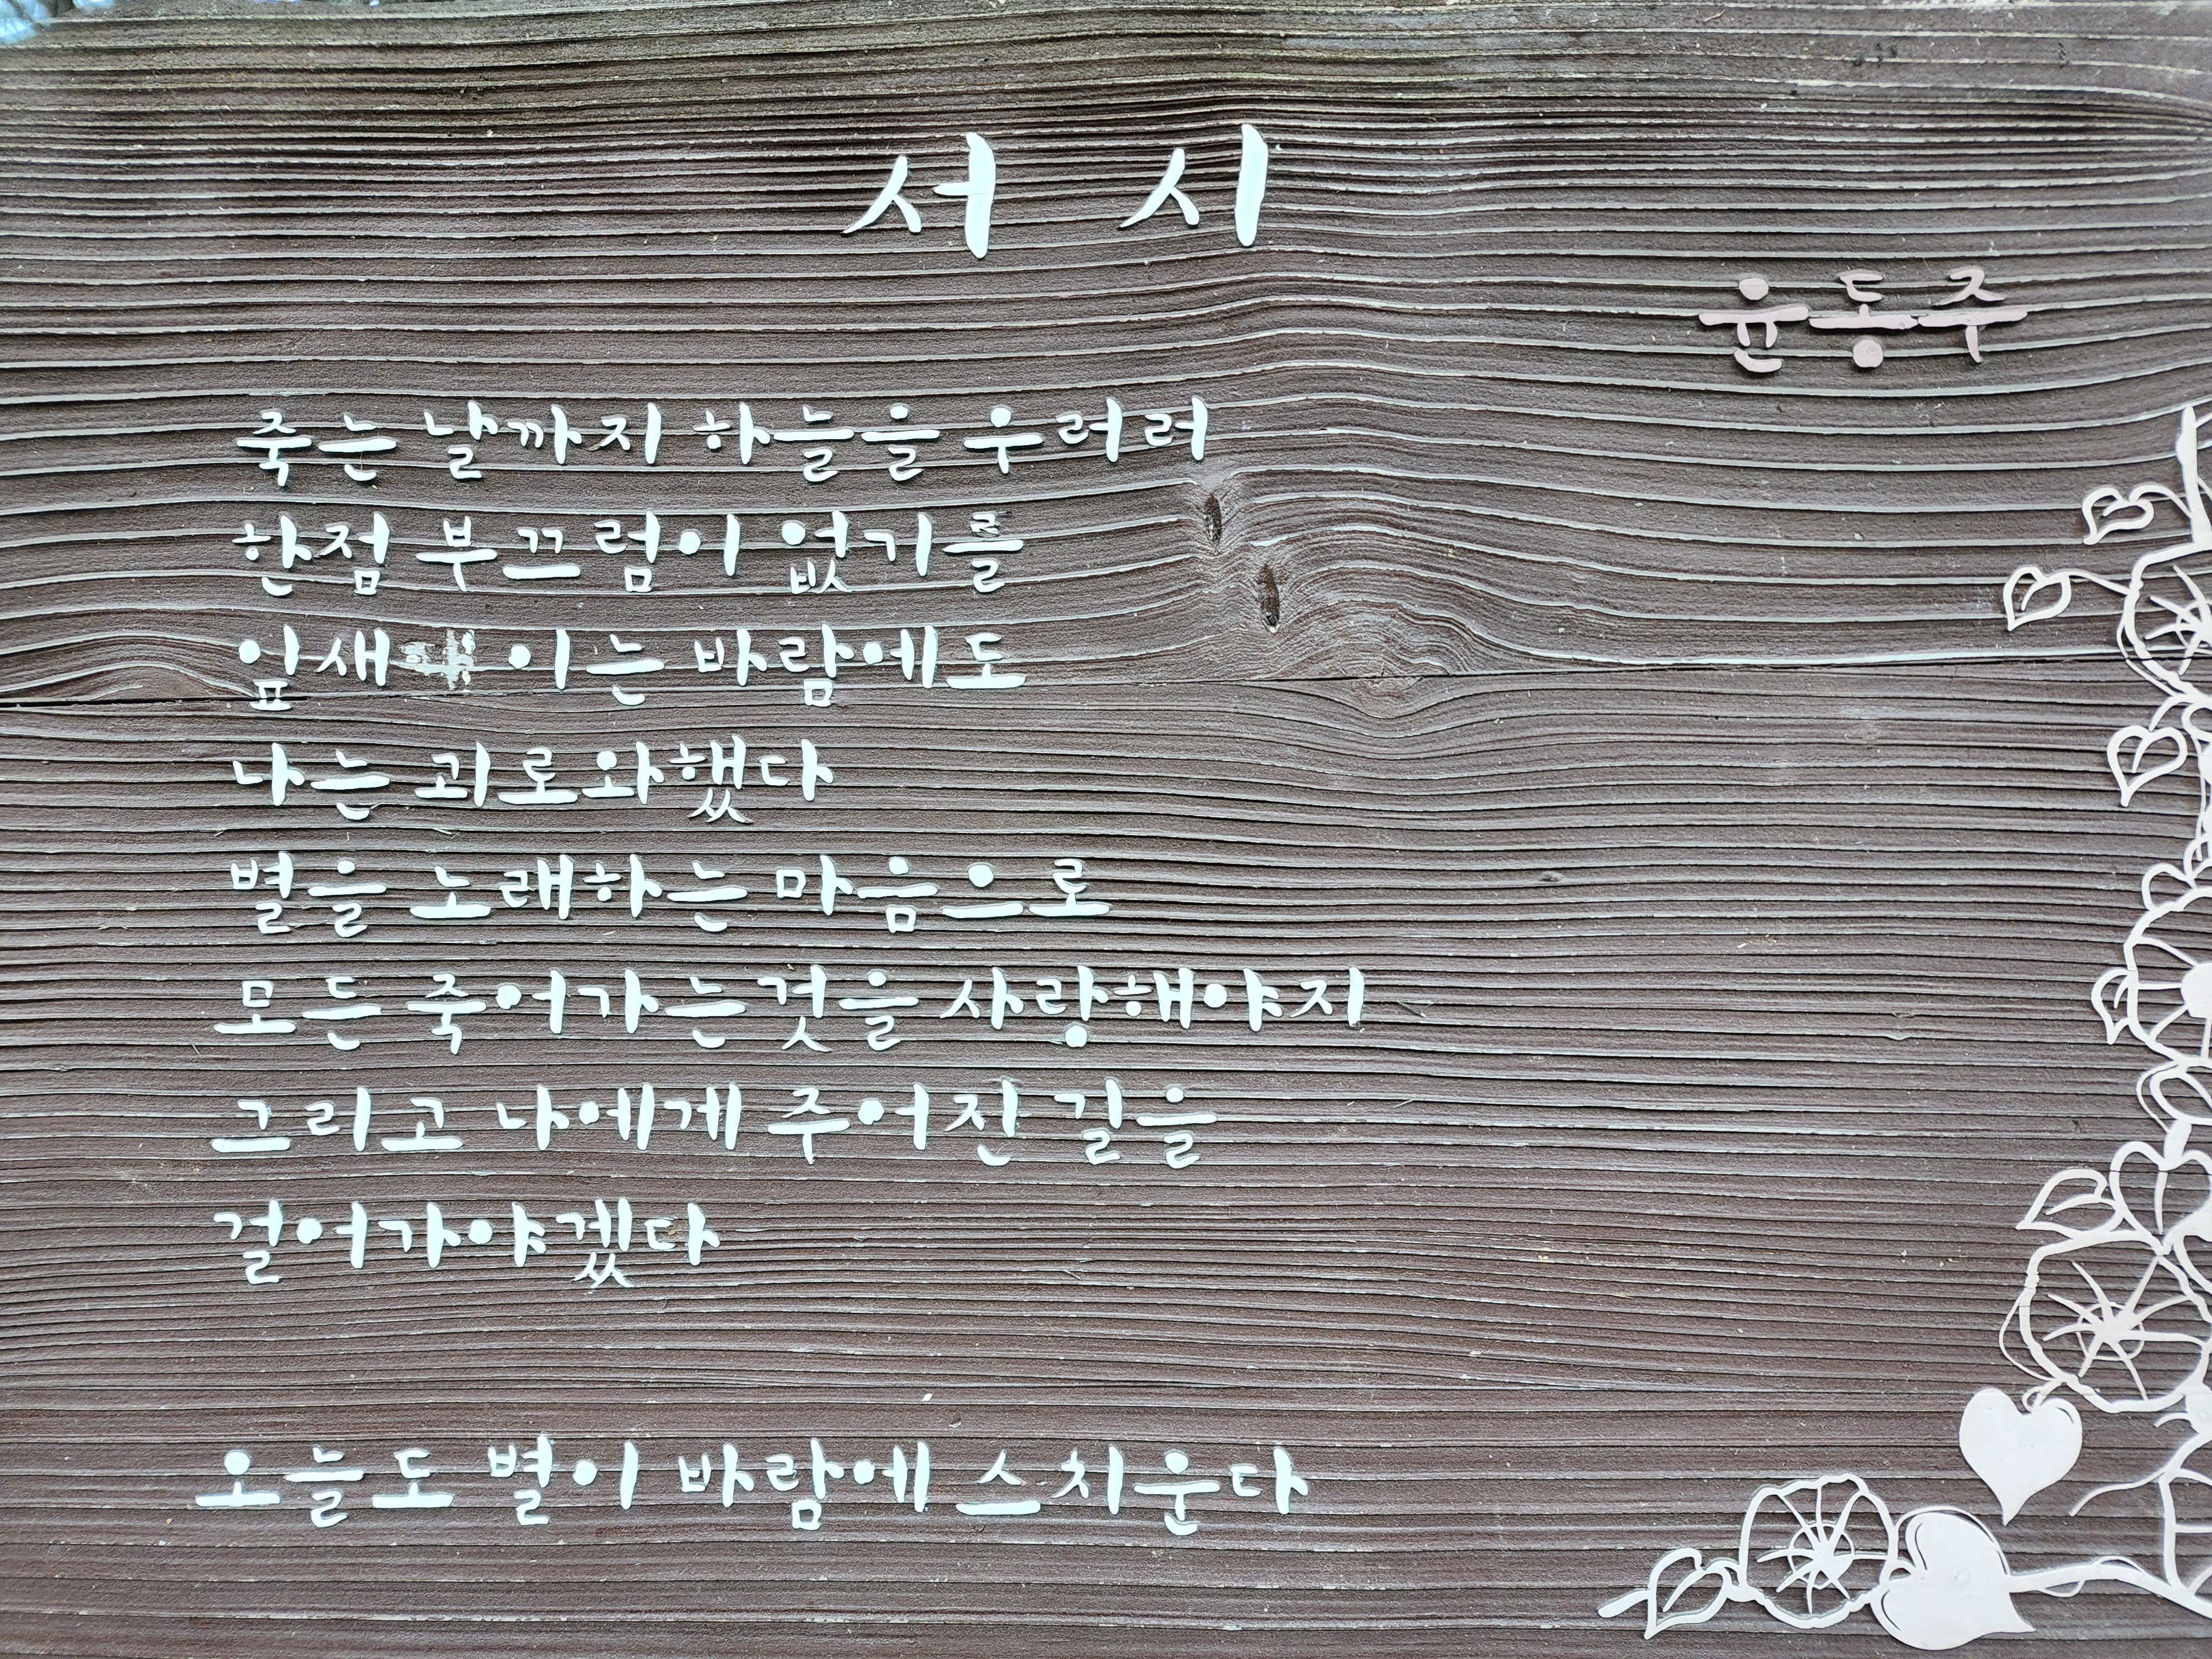 서 시
윤동주
죽는 날까지 하늘을 우러러
한점 부끄럼이 없기를
잎새 이는 바람에도
나는 괴로와했다
별을 노래하는 마음으로
모든 죽어가는것을 사랑해야지
그리고 나에게 주어진 길을
걸어가야겠다
오늘도 별이 바람에 스치운다